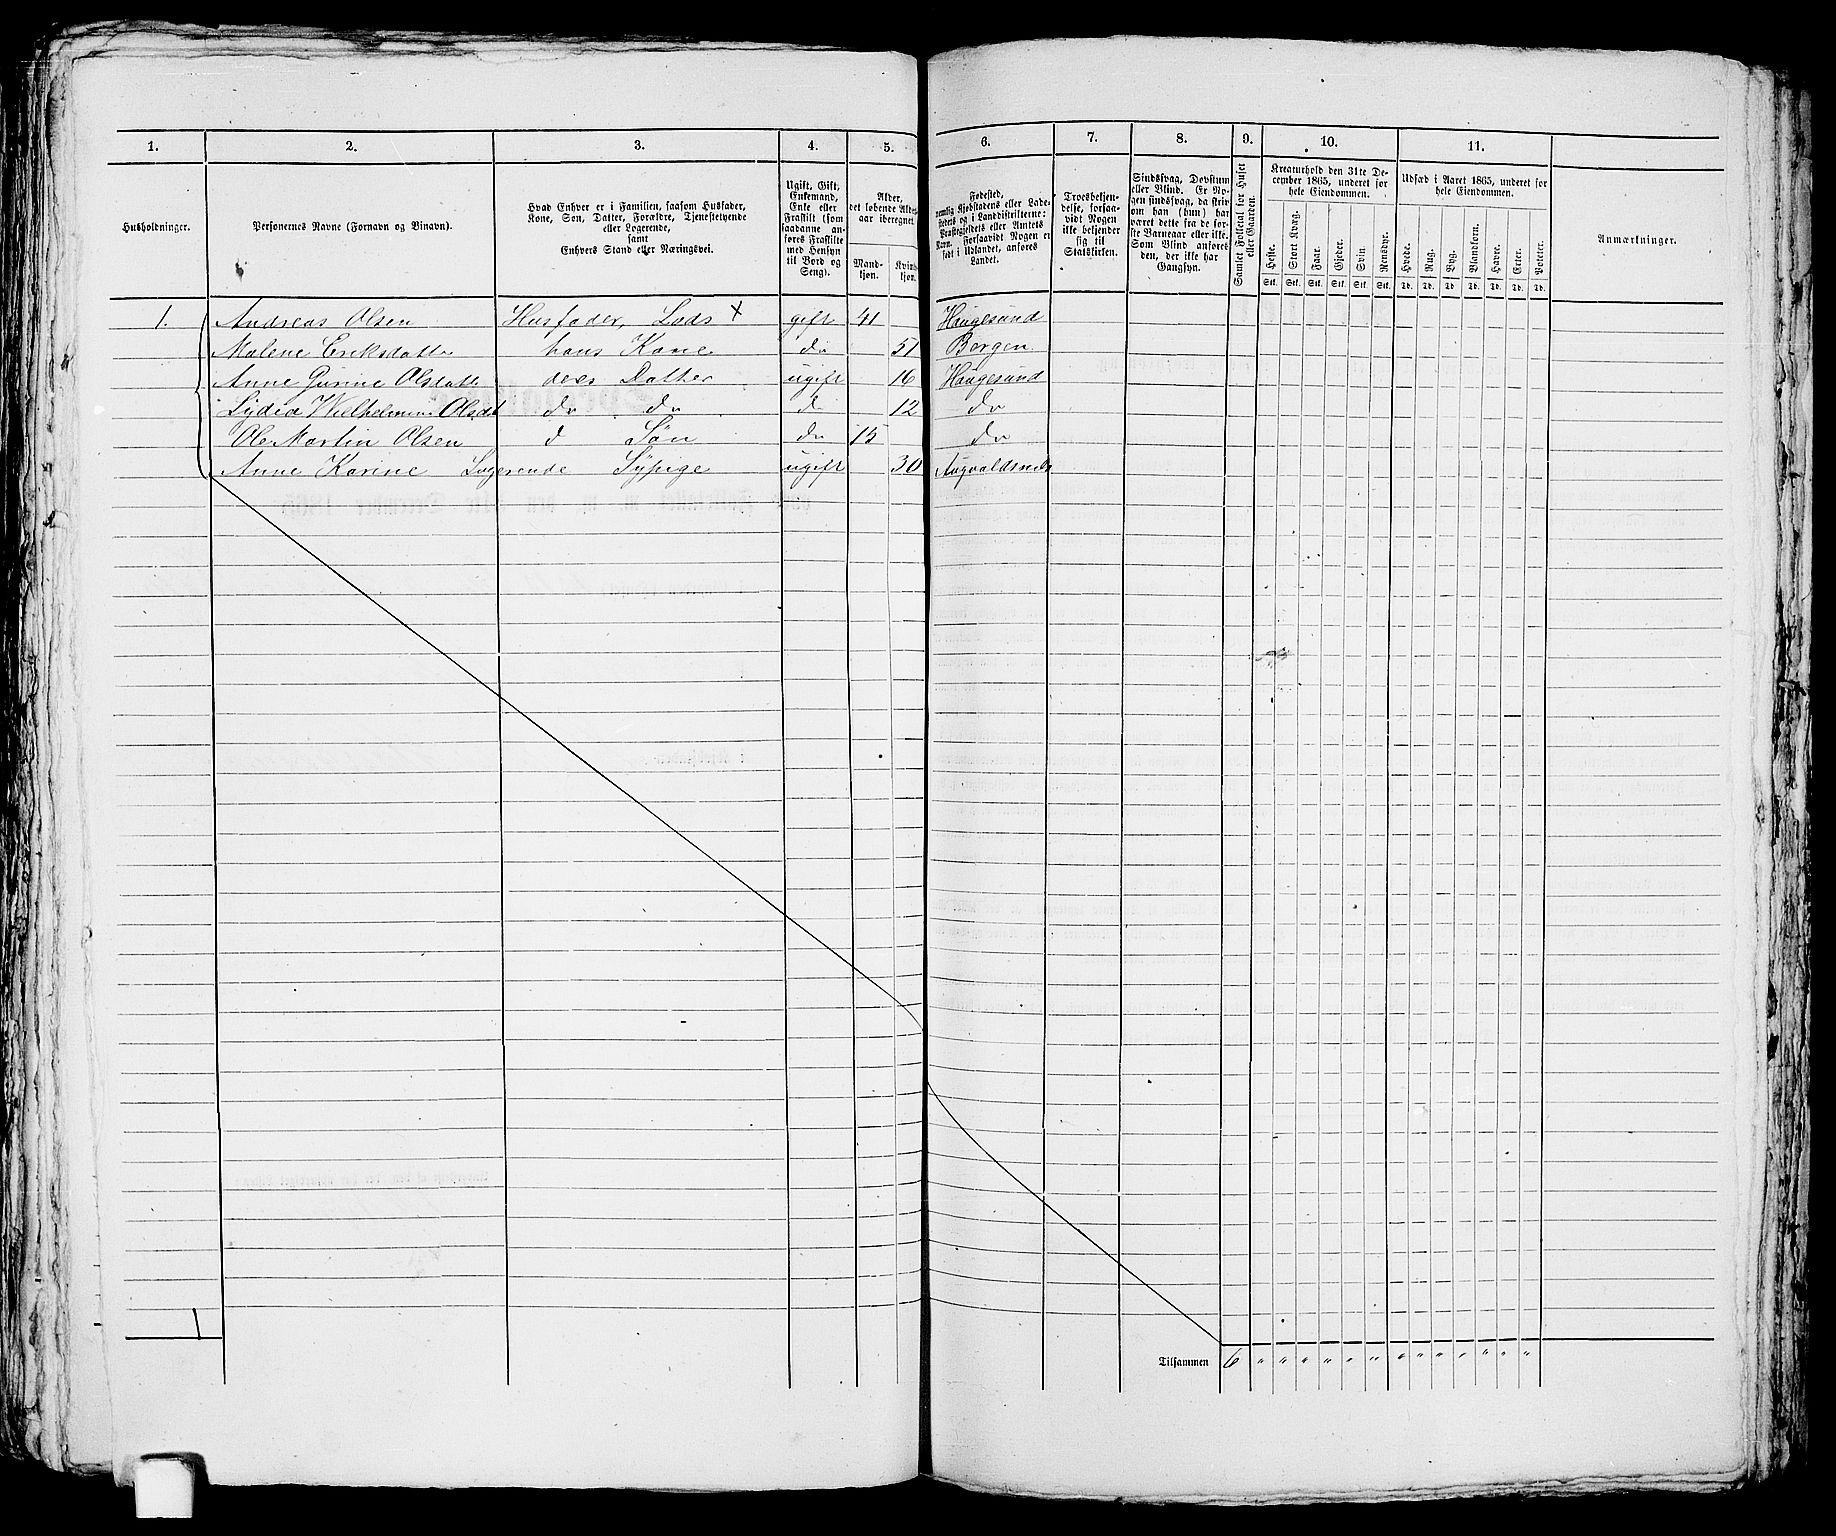 1. 2. 3. 4. 5. 6. 7. 8. 9. 10. 11.
Husholdninger.
Personernes Navne (Fornavn og Vinavn).
Hvad Enhver er i Familien, saasom Husfader,
Kone, Søn, Datter, Forældre, Tjenestetyende
eller Logerende,
samt
Enhvers Stand eller Næringsvei.
Ugift, Gift,
Enkemand,
Enke eller
Fraskilt (som
saadanne an-
føres Fraskilte
med Hensyn
til Bord og
Seng).
Alder,
det løbende Alders-
aar iberegnet.
Mand-
kjøn.
Kvinde-
kjøn.
Fødested,
nemlig Kjøbstadens eller Lade-
stedets og i Landdistrikterne:
Præstegjeldets eller Amtets
Navn. Forsaavidt Nogen er
født i Udlandet, anføres
Landet.
Troesbekjen-
delse, forsaa-
vidt Nogen
ikke bekjender
sig til
Statskirken.
Sindssvag, Døvstum
eller Blind. Er No-
gen sindssvag, da skriv
om han (hun) har
været dette fra de før-
ste Barneaar eller ikke.
Som Blind anføres
den, der ikke har
Gangsyn.
Samlet Folketal for Huset
eller Gaarden.
Kreaturhold den 31te De-
cember 1865, underet for
hele Eiendommen.
Heste. Stort Kvæg. Faar. Gjeder. Svin. Rensdyr.
Stk. Stk. Stk. Stk. Stk. Stk.
Udsæd i Aaret 1865, underet for
hele Eiendommen.
Hvede. Rug. Byg. Blandkorn. Havre. Erter. Poteter.
Td. Td. Td. Td. Td. Td. Td.
Anmærkninger.
1. Andreas Olsen Husfader, Lods x gift 41 Haugesund
Malene Eriksdatte hans Kone do 51 Bergen
Anne Gurine Olsdatt deres Datter ugift 16 Haugesund
Lydia Wilhelmine Olsdat do do d 12 do
Ole Martin Olsen d Søn do 15 do
Anne Karine Logerende Sypige ugift 30 Augvaldsnæs
1
Tilsammen 6 " " " " " " " " " " " " "